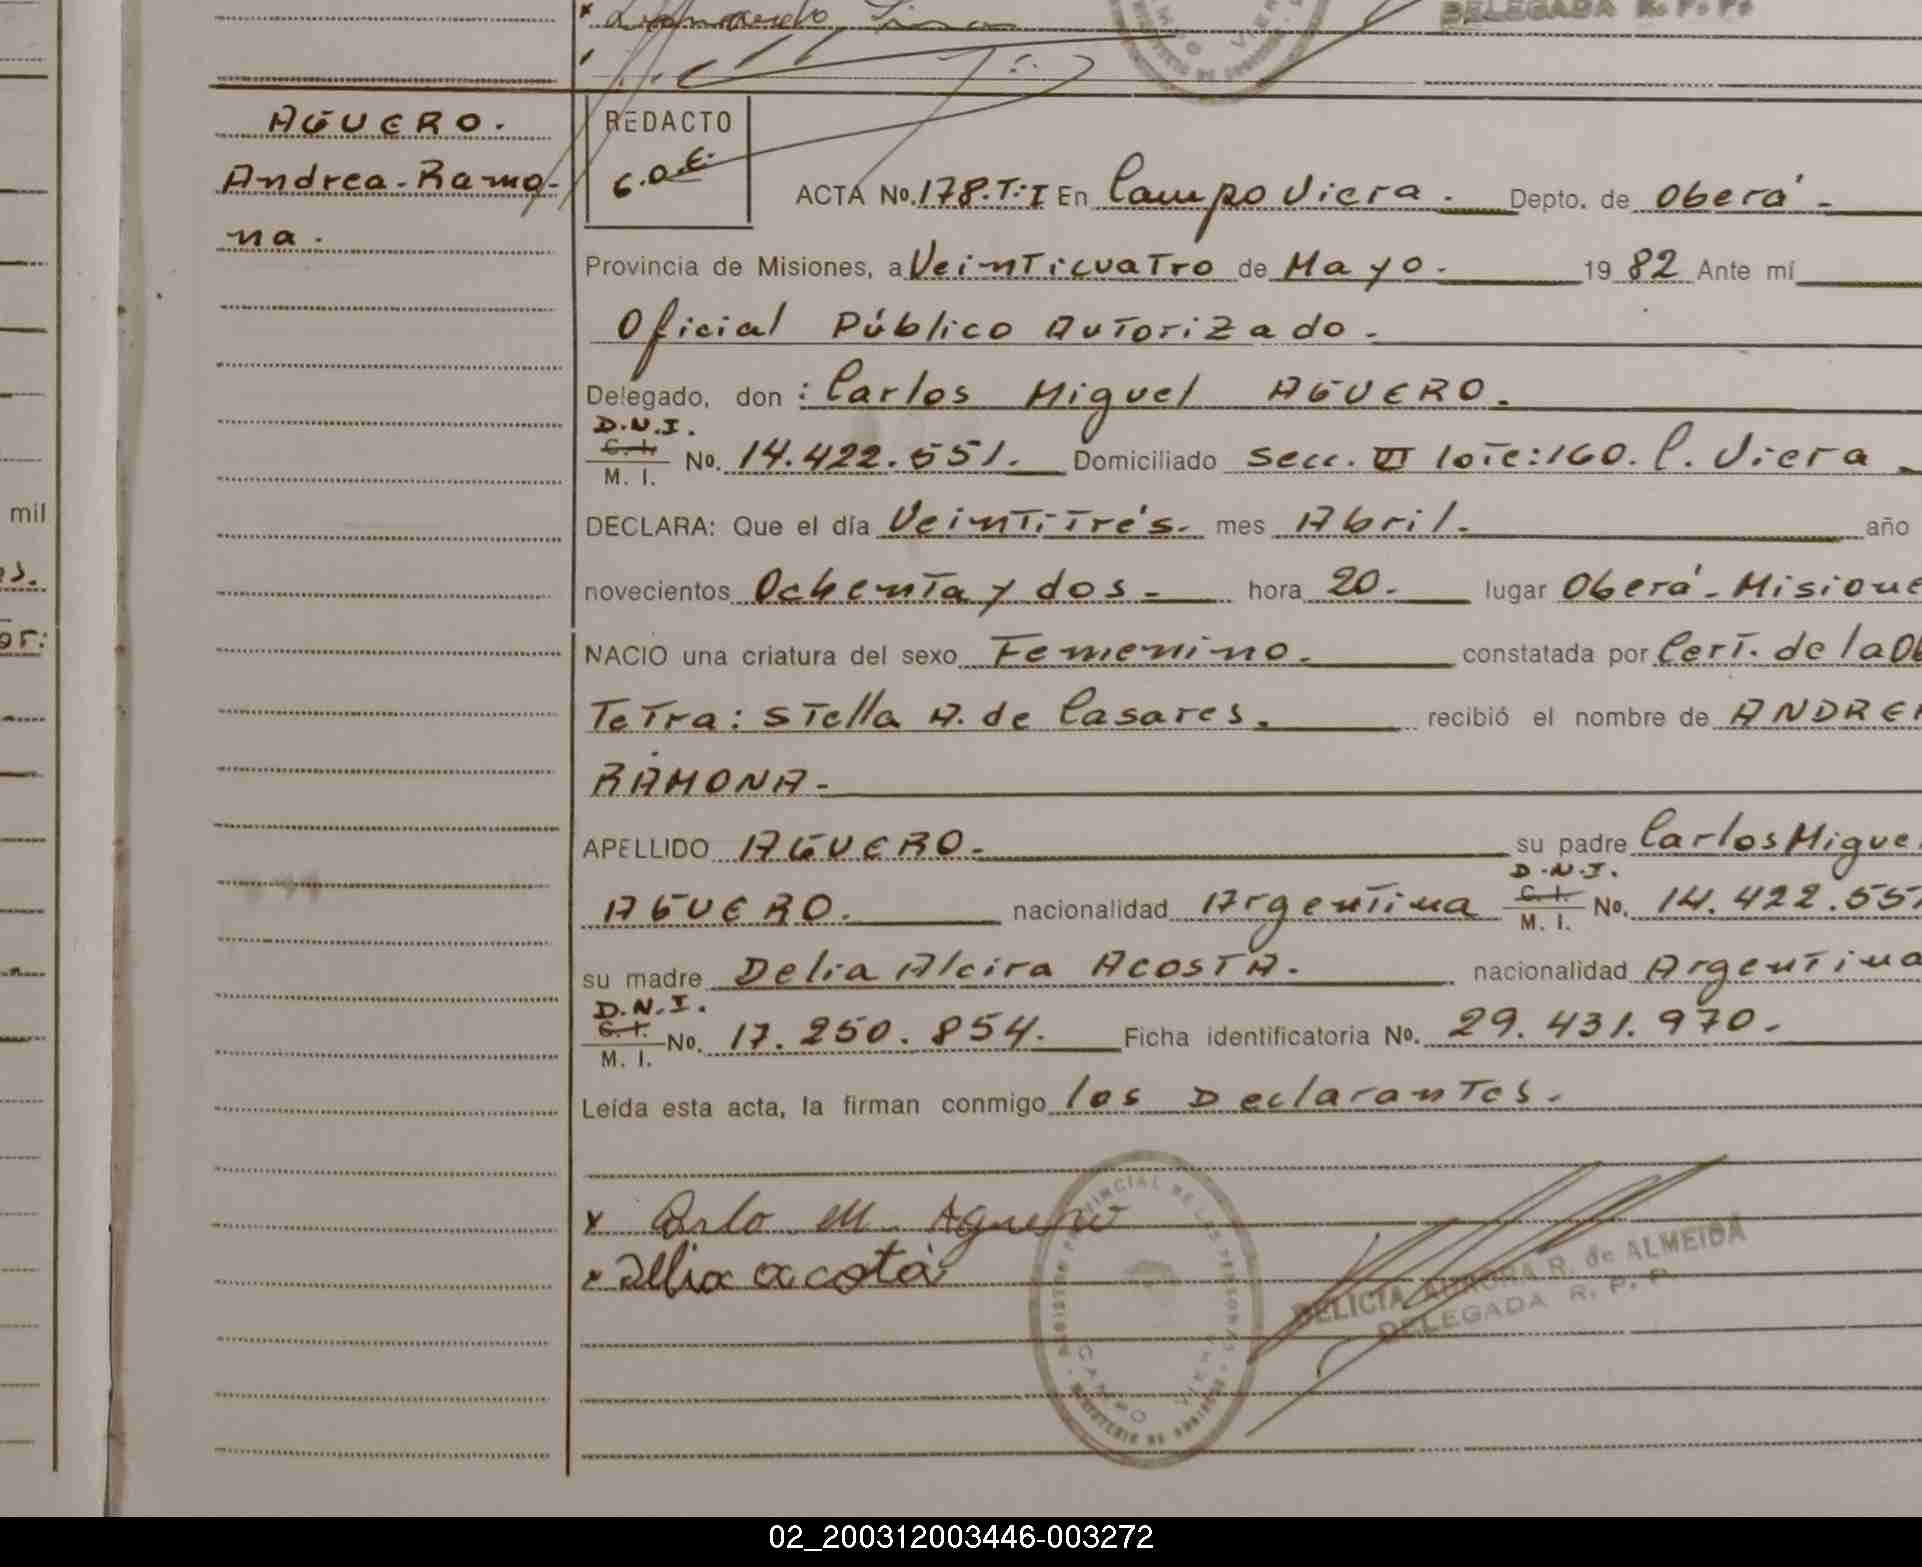 DELEGADA R. P. P.
AGUERO.
Andrea-Ramo-
na.
REDACTO
G.O.E.
ACTA No. 178.T:I En Campo Viera. Depto. de Oberá-
Provincia de Misiones, a Veinticuatro de Mayo. 1982 Ante mí
Oficial Público Autorizado.
Delegado, don: Carlos Miguel AGUERO.
D.N.I.
C.I.
M. I. No. 14.422.551. Domiciliado Secc. VI lote:160. C. Viera
mil
DECLARA: Que el día Veintitrés. mes Abril. año
novecientos Ochenta y dos- hora 20. lugar Oberá-Misione
NACIO una criatura del sexo Femenino. constatada por Cert. de la Ob
Tetra: Stella A. de Casares. recibió el nombre de ANDREA
RAMONA-
APELLIDO AGUERO. su padre Carlos Miguel
AGUERO. nacionalidad Argentina D.N.I. C.I. M. I. No. 14.422.551
su madre Delia Alcira ACOSTA. nacionalidad Argentina
D.N.I.
C.I.
M. I. No. 17.250.854. Ficha identificatoria No. 29.431.970.
Leída esta acta, la firman conmigo los Declarantes.
x Carlo M. Aguero
x Delia acosta
REGISTRO PROVINCIAL DE LAS PERSONAS
CAMPO VIERA
DELICIA AURORA R. de ALMEIDA
DELEGADA R. P. P.
02_200312003446-003272